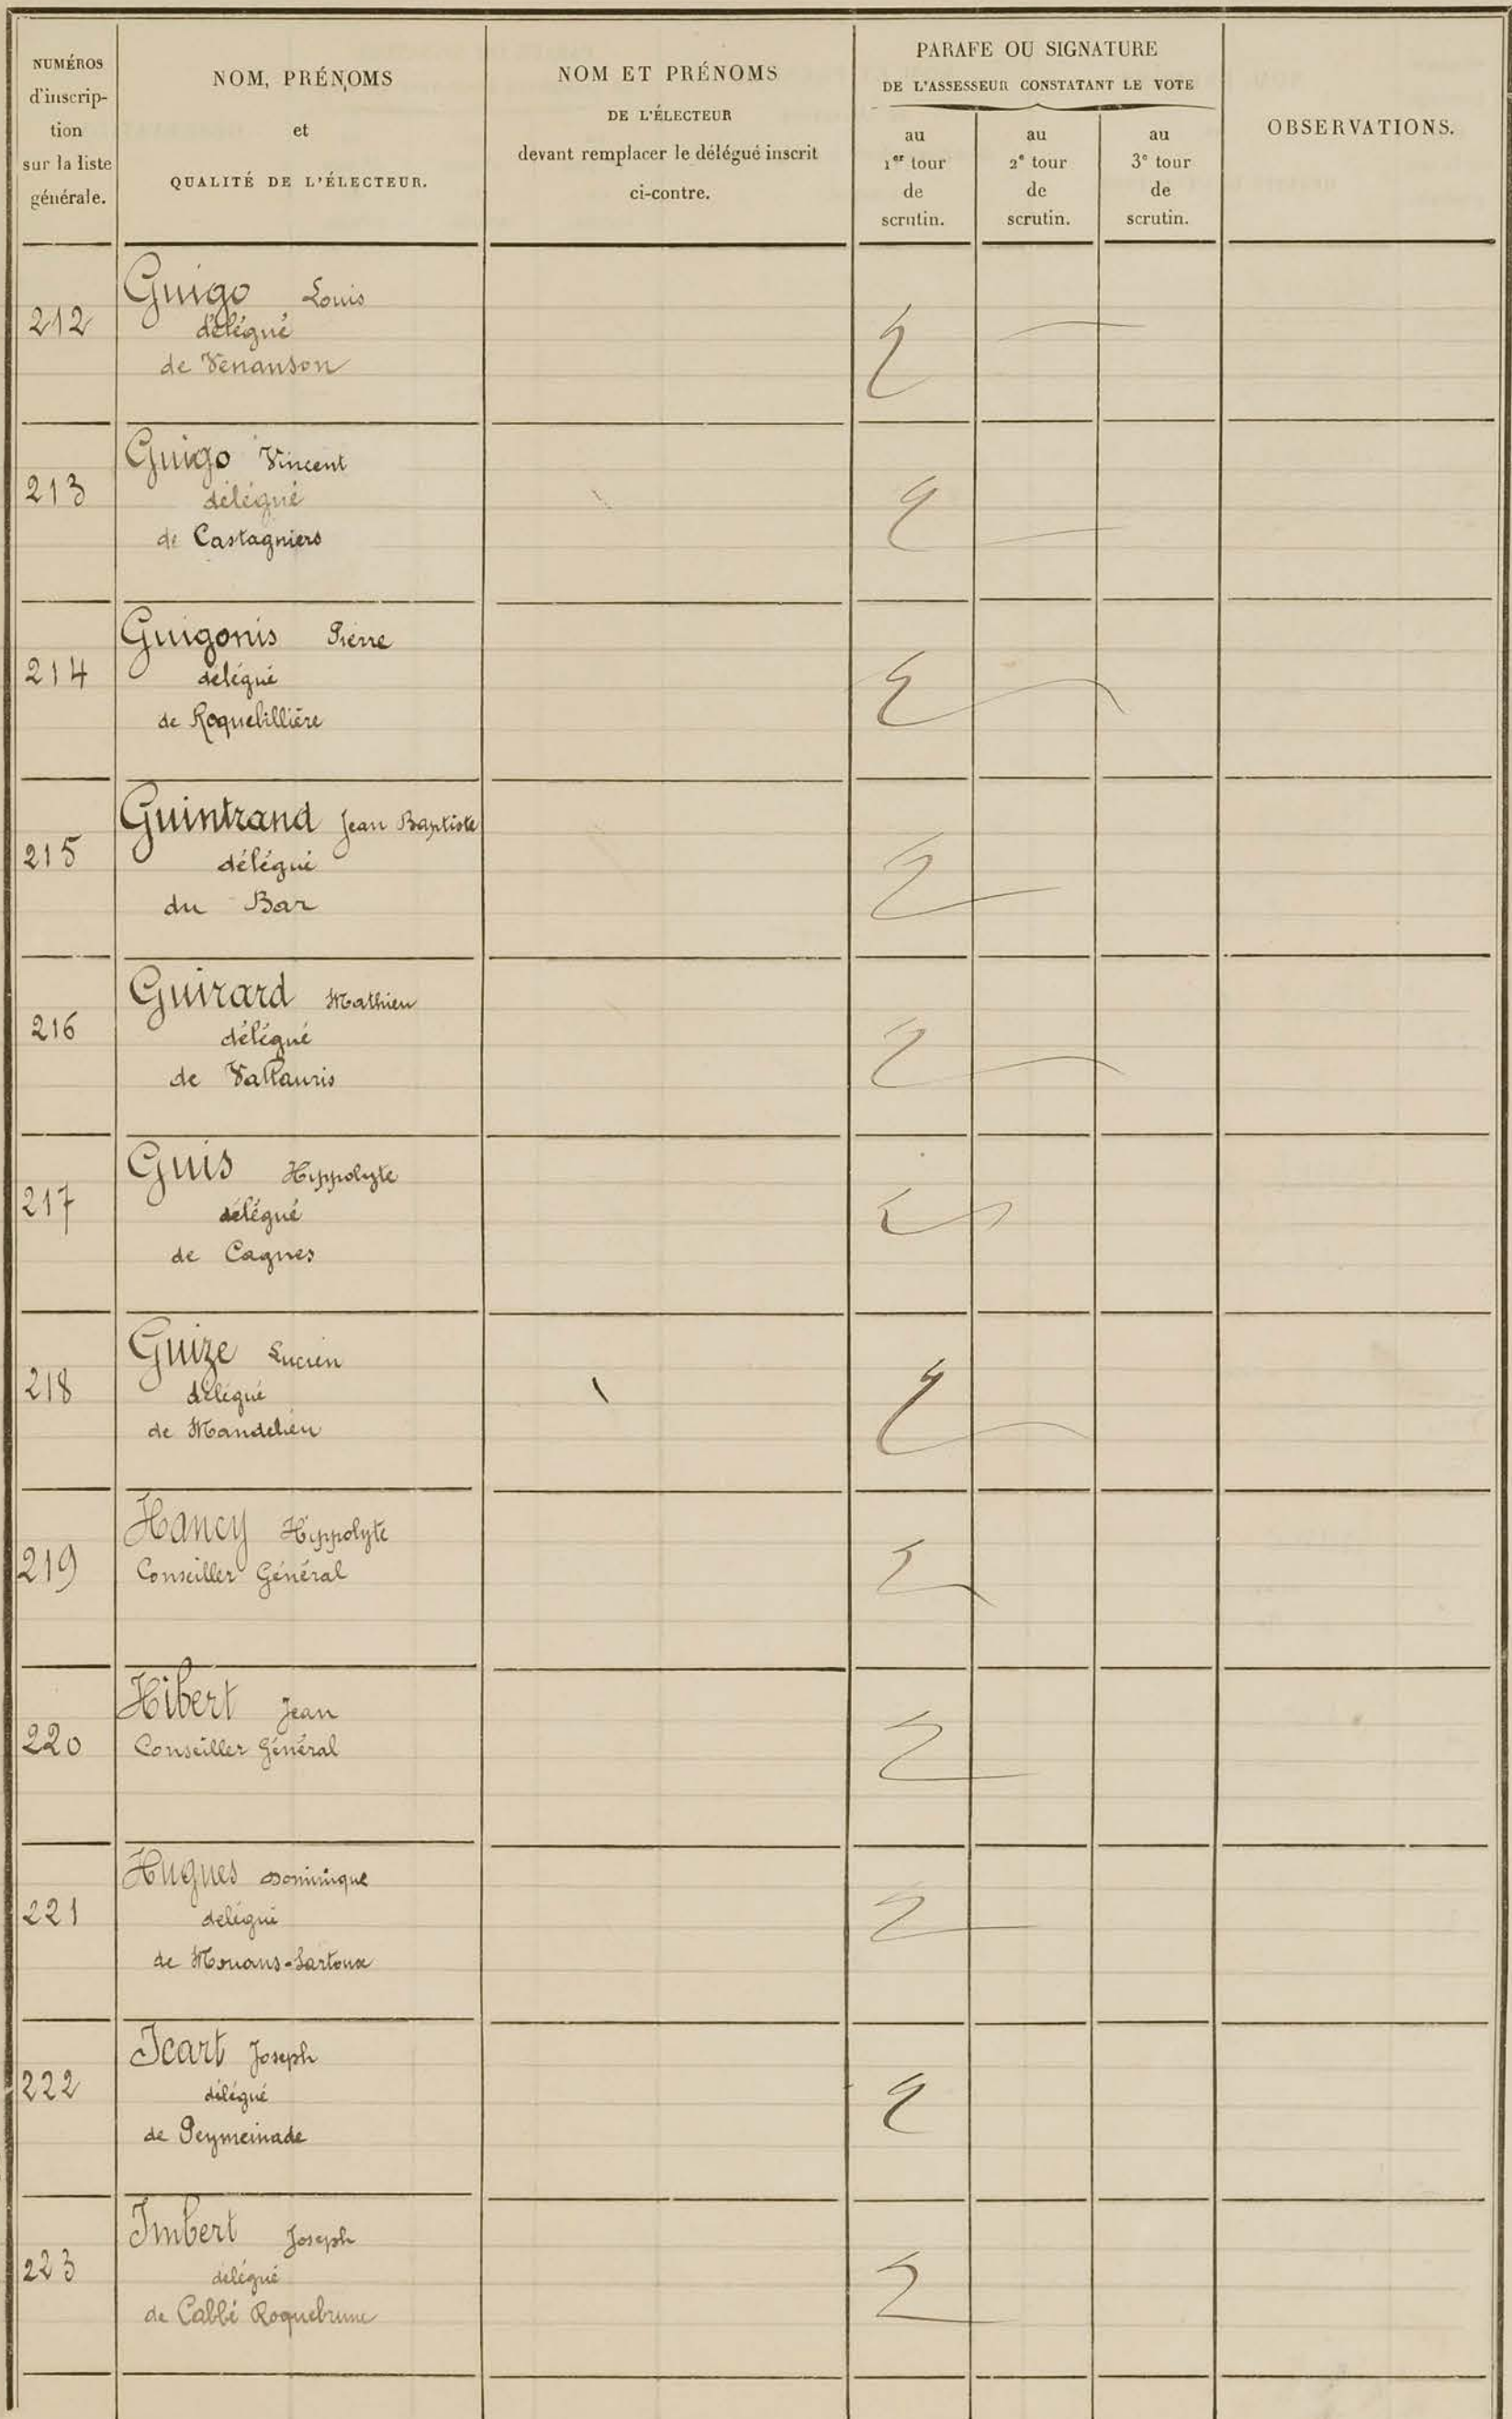 NUMÉROS
d'inscrip-
tion
sur la liste
générale.
NOM, PRÉNOMS
et
QUALITÉ DE L'ÉLECTEUR.
NOM ET PRÉNOMS
DE L'ÉLECTEUR
devant remplacer le délégué inscrit
ci-contre.
PARAFE OU SIGNATURE
DE L'ASSESSEUR CONSTATANT LE VOTE
au
1er tour
de
scrutin.
au
2e tour
de
scrutin.
au
3e tour
de
scrutin.
OBSERVATIONS.
212
Guigo Louis
délégué
de Venanson
213
Guigo Vincent
délégué
de Castagniers
214
Guigonis Pierre
délégué
de Roquebillière
215
Guintrand Jean Baptiste
délégué
du Bar
216
Guirard Mathieu
délégué
de Vallauris
217
Guis Hippolyte
délégué
de Cagnes
218
Guize Lucien
délégué
de Mandelieu
219
Hancy Hippolyte
Conseiller Général
220
Hibert Jean
Conseiller Général
221
Hugues Dominique
délégué
de Mouans-Sartoux
222
Icart Joseph
délégué
de Peymeinade
223
Imbert Joseph
délégué
de Cabbé Roquebrune